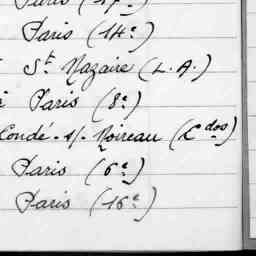 Paris (17e)
Paris (14e)
St Nazaire (L.A.)
Paris (8e)
Condé-s/-Noireau (Cdos)
Paris (6e)
Paris (16e)